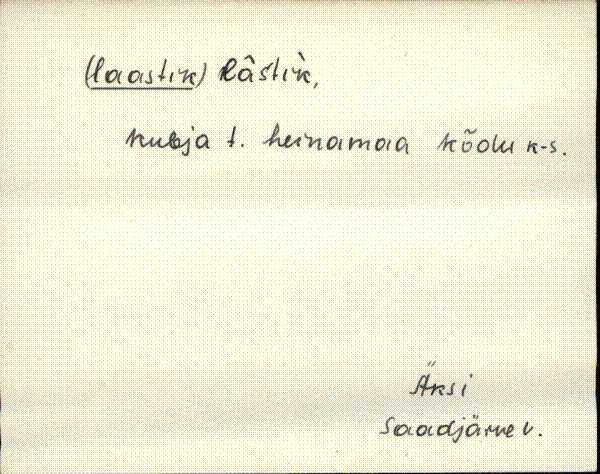 (laastik) lâstìk,
kubja t. heinamaa kõdu k-s.
Äksi
Saadjärve v.